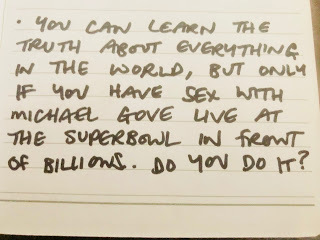 • YOU CAN LEARN THE
TRUTH ABOUT EVERYTHING
IN THE WORLD, BUT ONLY
IF YOU HAVE SEX WITH
MICHAEL GOVE LIVE AT
THE SUPERBOWL IN FRONT
OF BILLIONS. DO YOU DO IT?